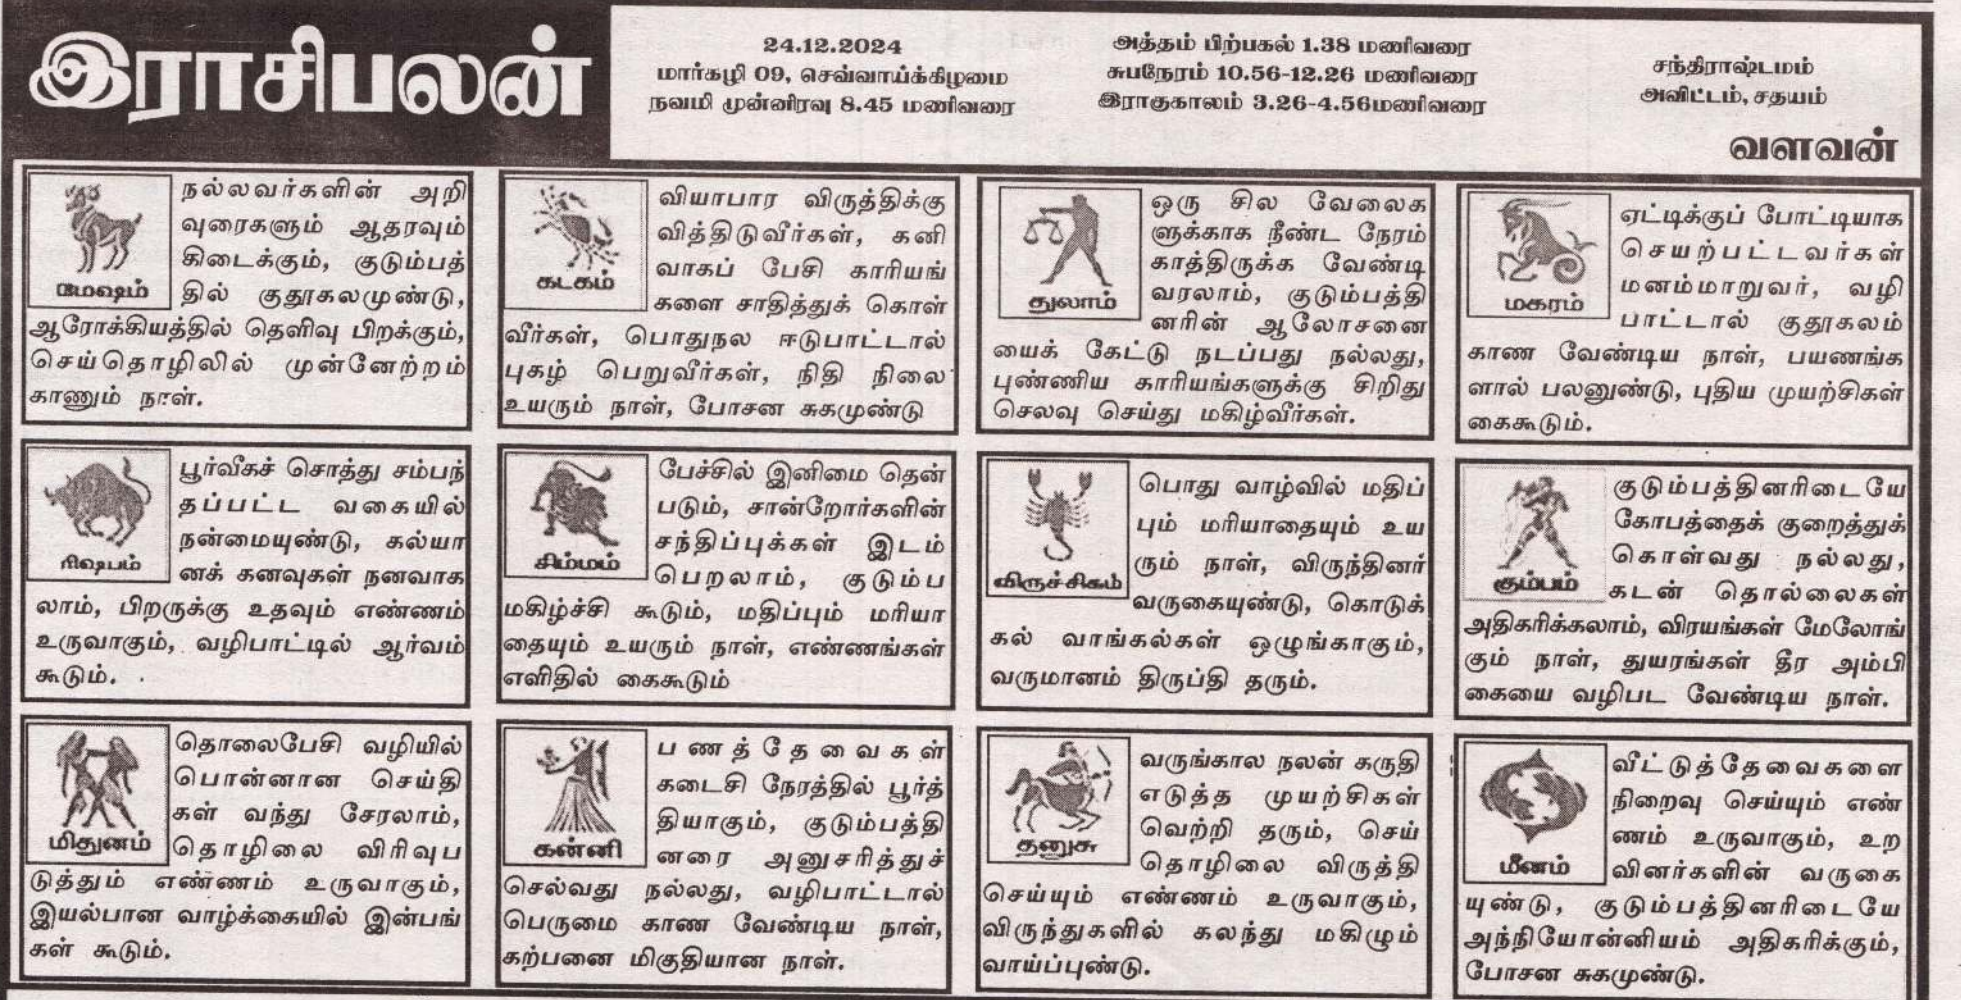 இராசிபலன்
24.12.2024
மார்கழி 09, செவ்வாய்க்கிழமை
நவமி முன்னிரவு 8.45 மணிவரை
அத்தம் பிற்பகல் 1.38 மணிவரை
சுபநேரம் 10.56-12.26 மணிவரை
இராகுகாலம் 3.26-4.56மணிவரை
சந்திராஷ்டமம்
அவிட்டம், சதயம்
வளவன்
மேஷம்
நல்லவர்களின் அறி
வுரைகளும் ஆதரவும்
கிடைக்கும், குடும்பத்
தில் குதூகலமுண்டு,
ஆரோக்கியத்தில் தெளிவு பிறக்கும்,
செய்தொழிலில் முன்னேற்றம்
காணும் நாள்.
ரிஷபம்
பூர்வீகச் சொத்து சம்பந்
தப்பட்ட வகையில்
நன்மையுண்டு, கல்யா
னக் கனவுகள் நனவாக
லாம், பிறருக்கு உதவும் எண்ணம்
உருவாகும், வழிபாட்டில் ஆர்வம்
கூடும்.
மிதுனம்
தொலைபேசி வழியில்
பொன்னான செய்தி
கள் வந்து சேரலாம்,
தொழிலை விரிவுப
டுத்தும் எண்ணம் உருவாகும்,
இயல்பான வாழ்க்கையில் இன்பங்
கள் கூடும்.
கடகம்
வியாபார விருத்திக்கு
வித்திடுவீர்கள், கனி
வாகப் பேசி காரியங்
களை சாதித்துக் கொள்
வீர்கள், பொதுநல ஈடுபாட்டால்
புகழ் பெறுவீர்கள், நிதி நிலை
உயரும் நாள், போசன சுகமுண்டு
சிம்மம்
பேச்சில் இனிமை தென்
படும், சான்றோர்களின்
சந்திப்புக்கள் இடம்
பெறலாம், குடும்ப
மகிழ்ச்சி கூடும், மதிப்பும் மரியா
தையும் உயரும் நாள், எண்ணங்கள்
எளிதில் கைகூடும்
கன்னி
பணத்தேவைகள்
கடைசி நேரத்தில் பூர்த்
தியாகும், குடும்பத்தி
னரை அனுசரித்துச்
செல்வது நல்லது, வழிபாட்டால்
பெருமை காண வேண்டிய நாள்,
கற்பனை மிகுதியான நாள்.
துலாம்
ஒரு சில வேலைக
ளுக்காக நீண்ட நேரம்
காத்திருக்க வேண்டி
வரலாம், குடும்பத்தி
னரின் ஆலோசனை
யைக் கேட்டு நடப்பது நல்லது,
புண்ணிய காரியங்களுக்கு சிறிது
செலவு செய்து மகிழ்வீர்கள்.
விருச்சிகம்
பொது வாழ்வில் மதிப்
பும் மரியாதையும் உய
ரும் நாள், விருந்தினர்
வருகையுண்டு, கொடுக்
கல் வாங்கல்கள் ஒழுங்காகும்,
வருமானம் திருப்தி தரும்.
தனுசு
வருங்கால நலன் கருதி
எடுத்த முயற்சிகள்
வெற்றி தரும், செய்
தொழிலை விருத்தி
செய்யும் எண்ணம் உருவாகும்,
விருந்துகளில் கலந்து மகிழும்
வாய்ப்புண்டு.
மகரம்
ஏட்டிக்குப் போட்டியாக
செயற்பட்டவர்கள்
மனம்மாறுவர், வழி
பாட்டால் குதூகலம்
காண வேண்டிய நாள், பயணங்க
ளால் பலனுண்டு, புதிய முயற்சிகள்
கைகூடும்.
கும்பம்
குடும்பத்தினரிடையே
கோபத்தைக் குறைத்துக்
கொள்வது நல்லது,
கடன் தொல்லைகள்
அதிகரிக்கலாம், விரயங்கள் மேலோங்
கும் நாள், துயரங்கள் தீர அம்பி
கையை வழிபட வேண்டிய நாள்.
மீனம்
வீட்டுத்தேவைகளை
நிறைவு செய்யும் எண்
ணம் உருவாகும், உற
வினர்களின் வருகை
யுண்டு, குடும்பத்தினரிடையே
அந்நியோன்னியம் அதிகரிக்கும்,
போசன சுகமுண்டு.